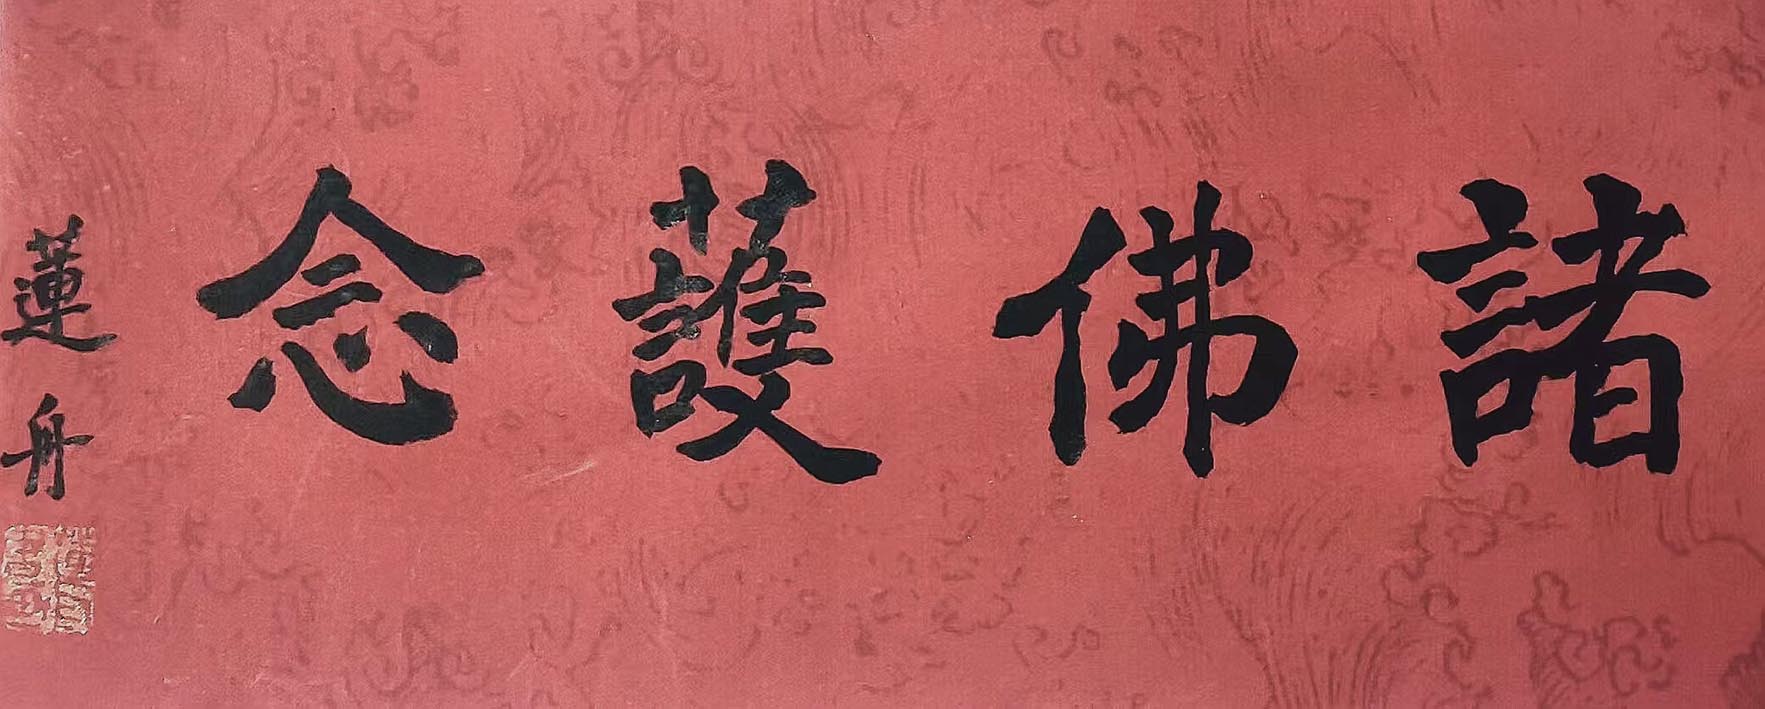 諸佛護念
蓮舟